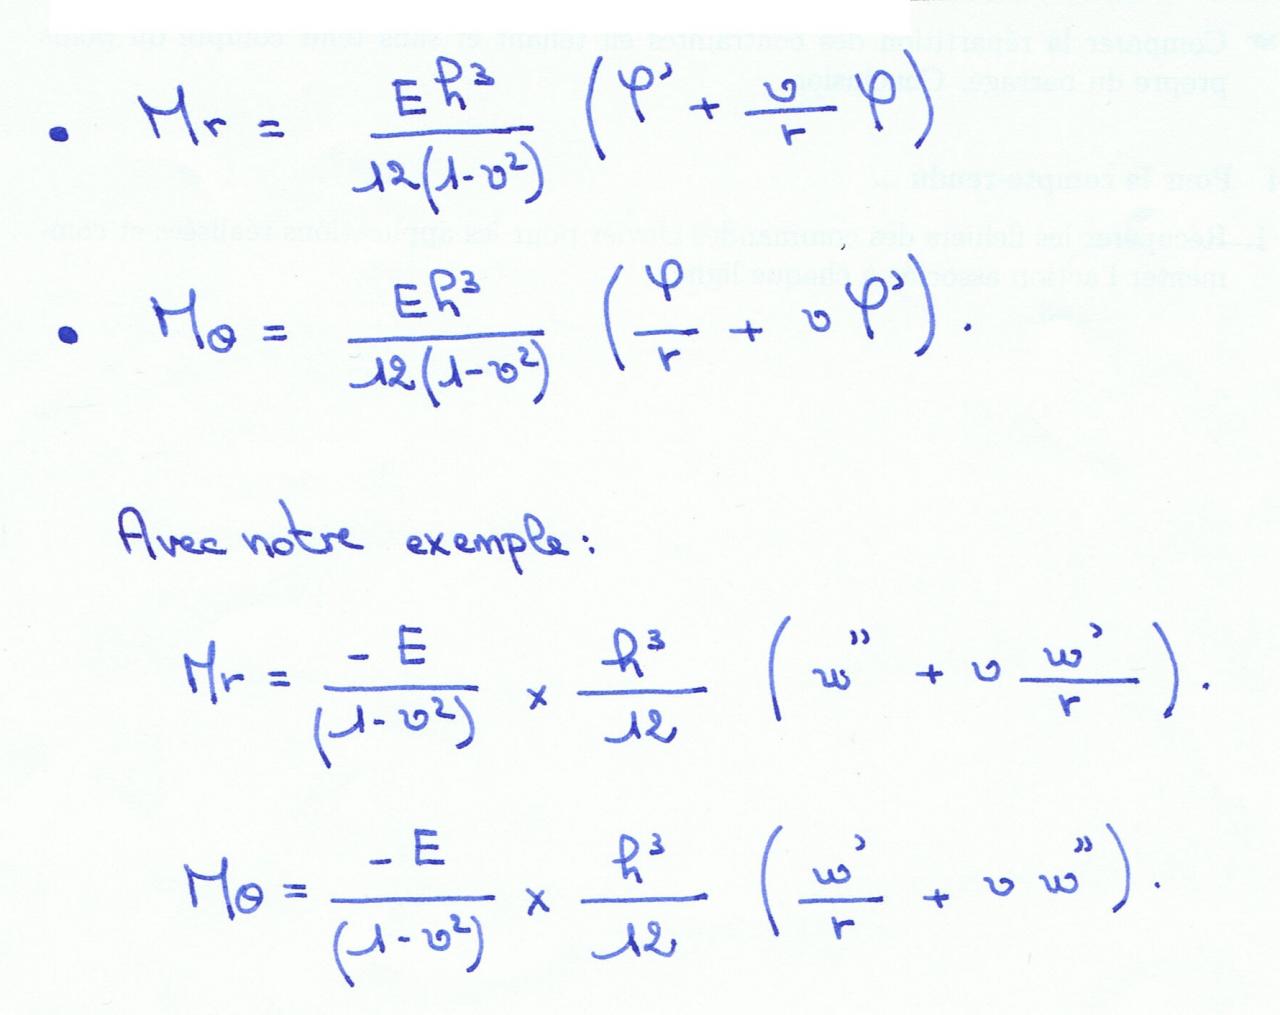 • Mr = Eh³ / 12(1-ν²) (φ' + ν/r φ)
• Mθ = Eh³ / 12(1-ν²) (φ/r + ν φ').
Avec notre exemple:
Mr = -E / (1-ν²) × h³/12 (w'' + ν w'/r).
Mθ = -E / (1-ν²) × h³/12 (w'/r + ν w'').